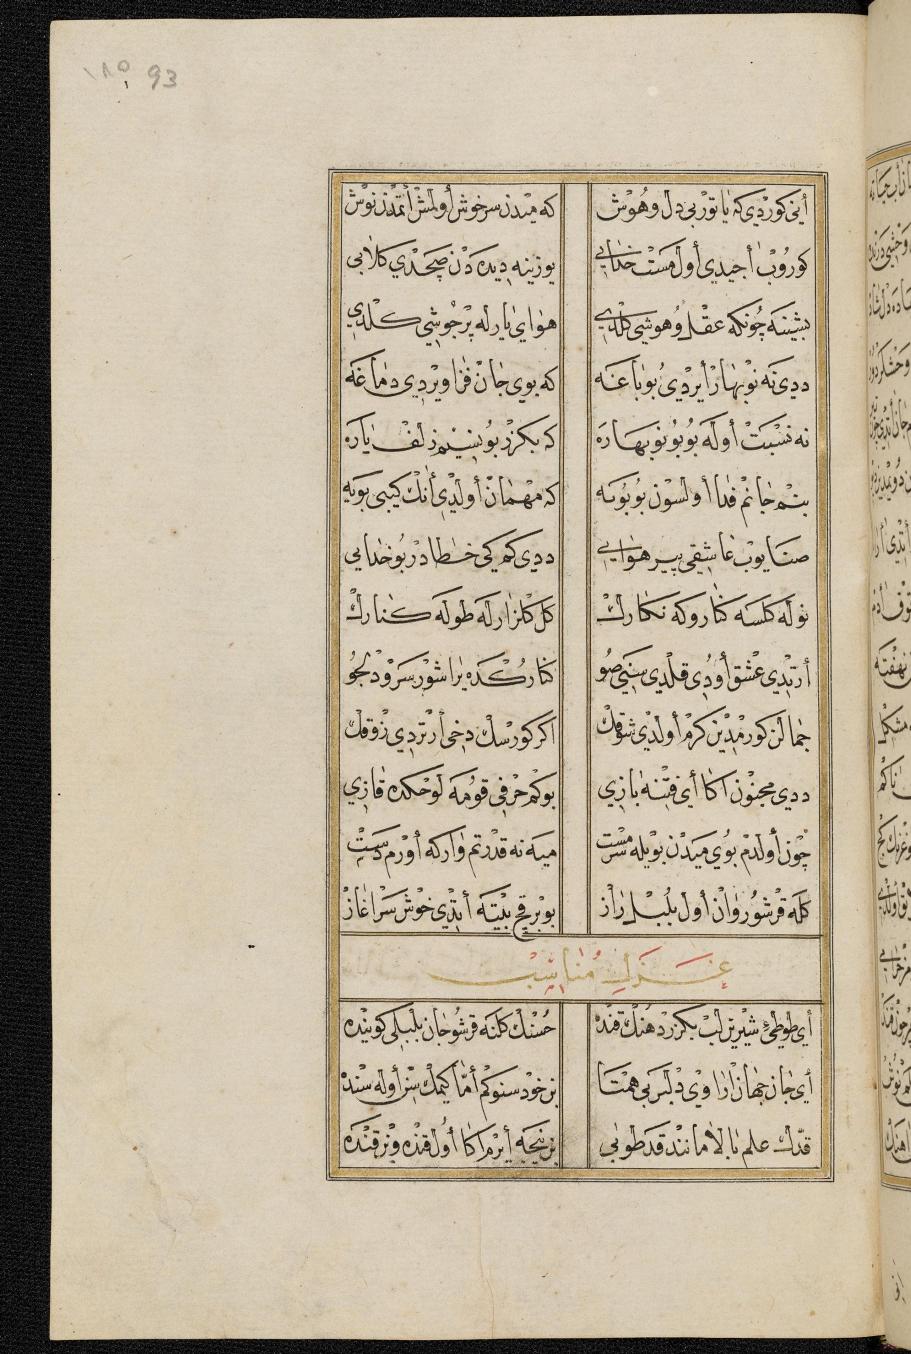 ١٨٥ 93
أنى كوردى كه ياتور بى دل وهوش كه ميدن سرخوش أولمش أتمدن نوش
كوروب أجيدى أول مست خدايى يوزينه ديده دن صچدى كلابى
يتشينه چونكه عقل وهوشى كلدى هواى يارله پرجوشى كلدى
ددى نه نوبهار أيردى بوباغه كه بوى جان فزا ويردى دماغه
نه نسبت أوله بوبو نوبهاره كه بكزر بو نسيم زلف ياره
بنم جانم فدا أولسون بوبويه كه مهمان أولدى أنك كيبى بويه
صنايوب عاشقى پير هوايى ددى كم كى خطادر بو خدايى
نوله كلسه كناروكه نكارك كل كلزارله طوله كنارك
أرتدى عشق أودى قلدى سنى صو كناركده يراشور سرو دلجو
جمالن كورمدين كرم أولدى شوقك اكر كورسك دخى أرتردى ذوقك
ددى مجنون اكا أى فتنه بازى بوكم حرفى قومه لوحكده قازى
چون أولدم بوى ميدن بويله سرمست ميه نه قدرتم واركه أورم دست
كله قرشو روان أول بلبل راز بو برقچ بيته أيتدى خوش سراغاز
غزل مناسب
أى طوطئ شيرين لب بكزر دهنك قنده حسنك كلنه قرشو جان بلبلى كوينده
أى جان جهان ارا وى دلبر بى همتا بن خود سنوكم أما كيمك سن أوله سنده
قدك علم بالا مانند قد طوبى بن نيجه أيرم اكا أول قنده وبن قنده